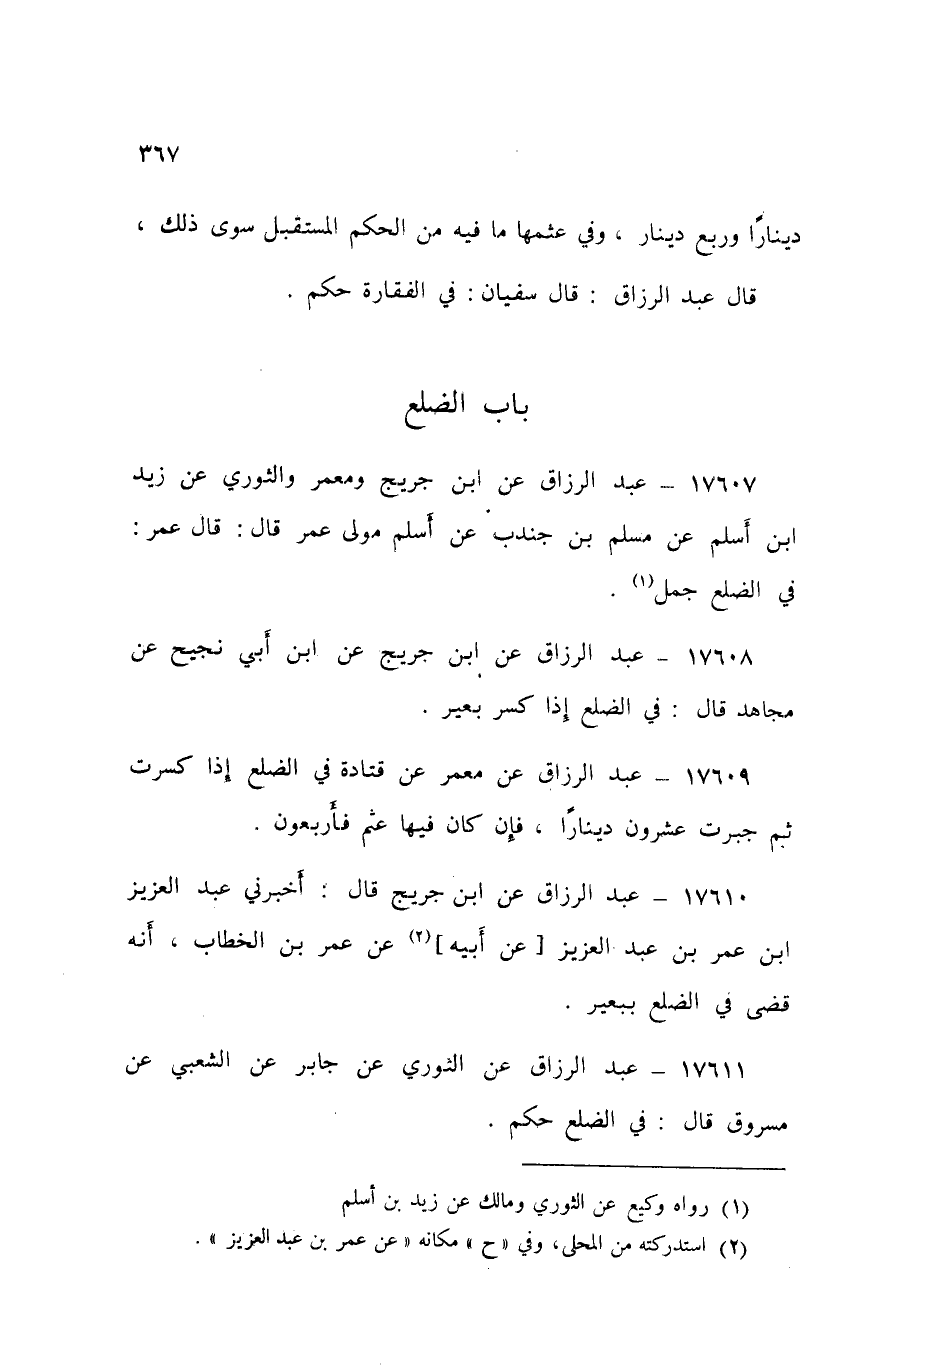 ٣٦٧
دينارًا وربع دينار ، وفي عثمها ما فيه من الحكم المستقبل سوى ذلك ،
قال عبد الرزاق : قال سفيان : في الفقارة حكم .
باب الضلع
١٧٦٠٧ – عبد الرزاق عن ابن جريج ومعمر والثوري عن زيد
ابن أَسلم عن مسلم بن جندب عن أَسلم مولى عمر قال : قال عمر :
في الضلع جمل(١) .
١٧٦٠٨ – عبد الرزاق عن ابن جريج عن ابن أَبي نجيح عن
مجاهد قال : في الضلع إذا كسر بعير .
١٧٦٠٩ – عبد الرزاق عن معمر عن قتادة في الضلع إذا كسرت
ثم جبرت عشرون دينارًا ، فإن كان فيها عثم فأَربعون .
١٧٦١٠ – عبد الرزاق عن ابن جريج قال : أَخبرني عبد العزيز
ابن عمر بن عبد العزيز [ عن أَبيه ](٢) عن عمر بن الخطاب ، أَنه
قضى في الضلع ببعير .
١٧٦١١ – عبد الرزاق عن الثوري عن جابر عن الشعبي عن
مسروق قال : في الضلع حكم .
(١) رواه وكيع عن الثوري ومالك عن زيد بن أسلم
(٢) استدركته من المحلى، وفي « ح » مكانه « عن عمر بن عبد العزيز » .